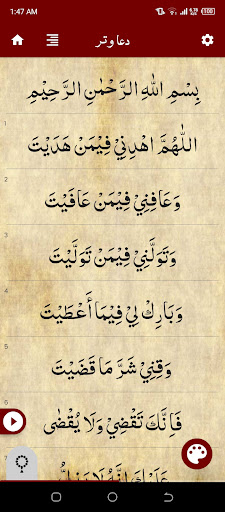 1:47 AM
دعا وتر
بِسْمِ اللهِ الرَّحْمٰنِ الرَّحِيْمِ
اَللّٰهُمَّ اهْدِنِيْ فِيْمَنْ هَدَيْتَ
2
وَعَافِنِيْ فِيْمَنْ عَافَيْتَ
3
وَتَوَلَّنِيْ فِيْمَنْ تَوَلَّيْتَ
4
وَبَارِكْ لِيْ فِيْمَا أَعْطَيْتَ
5
وَقِنِيْ شَرَّ مَا قَضَيْتَ
6
فَاِنَّكَ تَقْضِيْ وَلَا يُقْضٰى
7
عَلَيْكَ اِنَّهٗ لَا يَذِلُّ